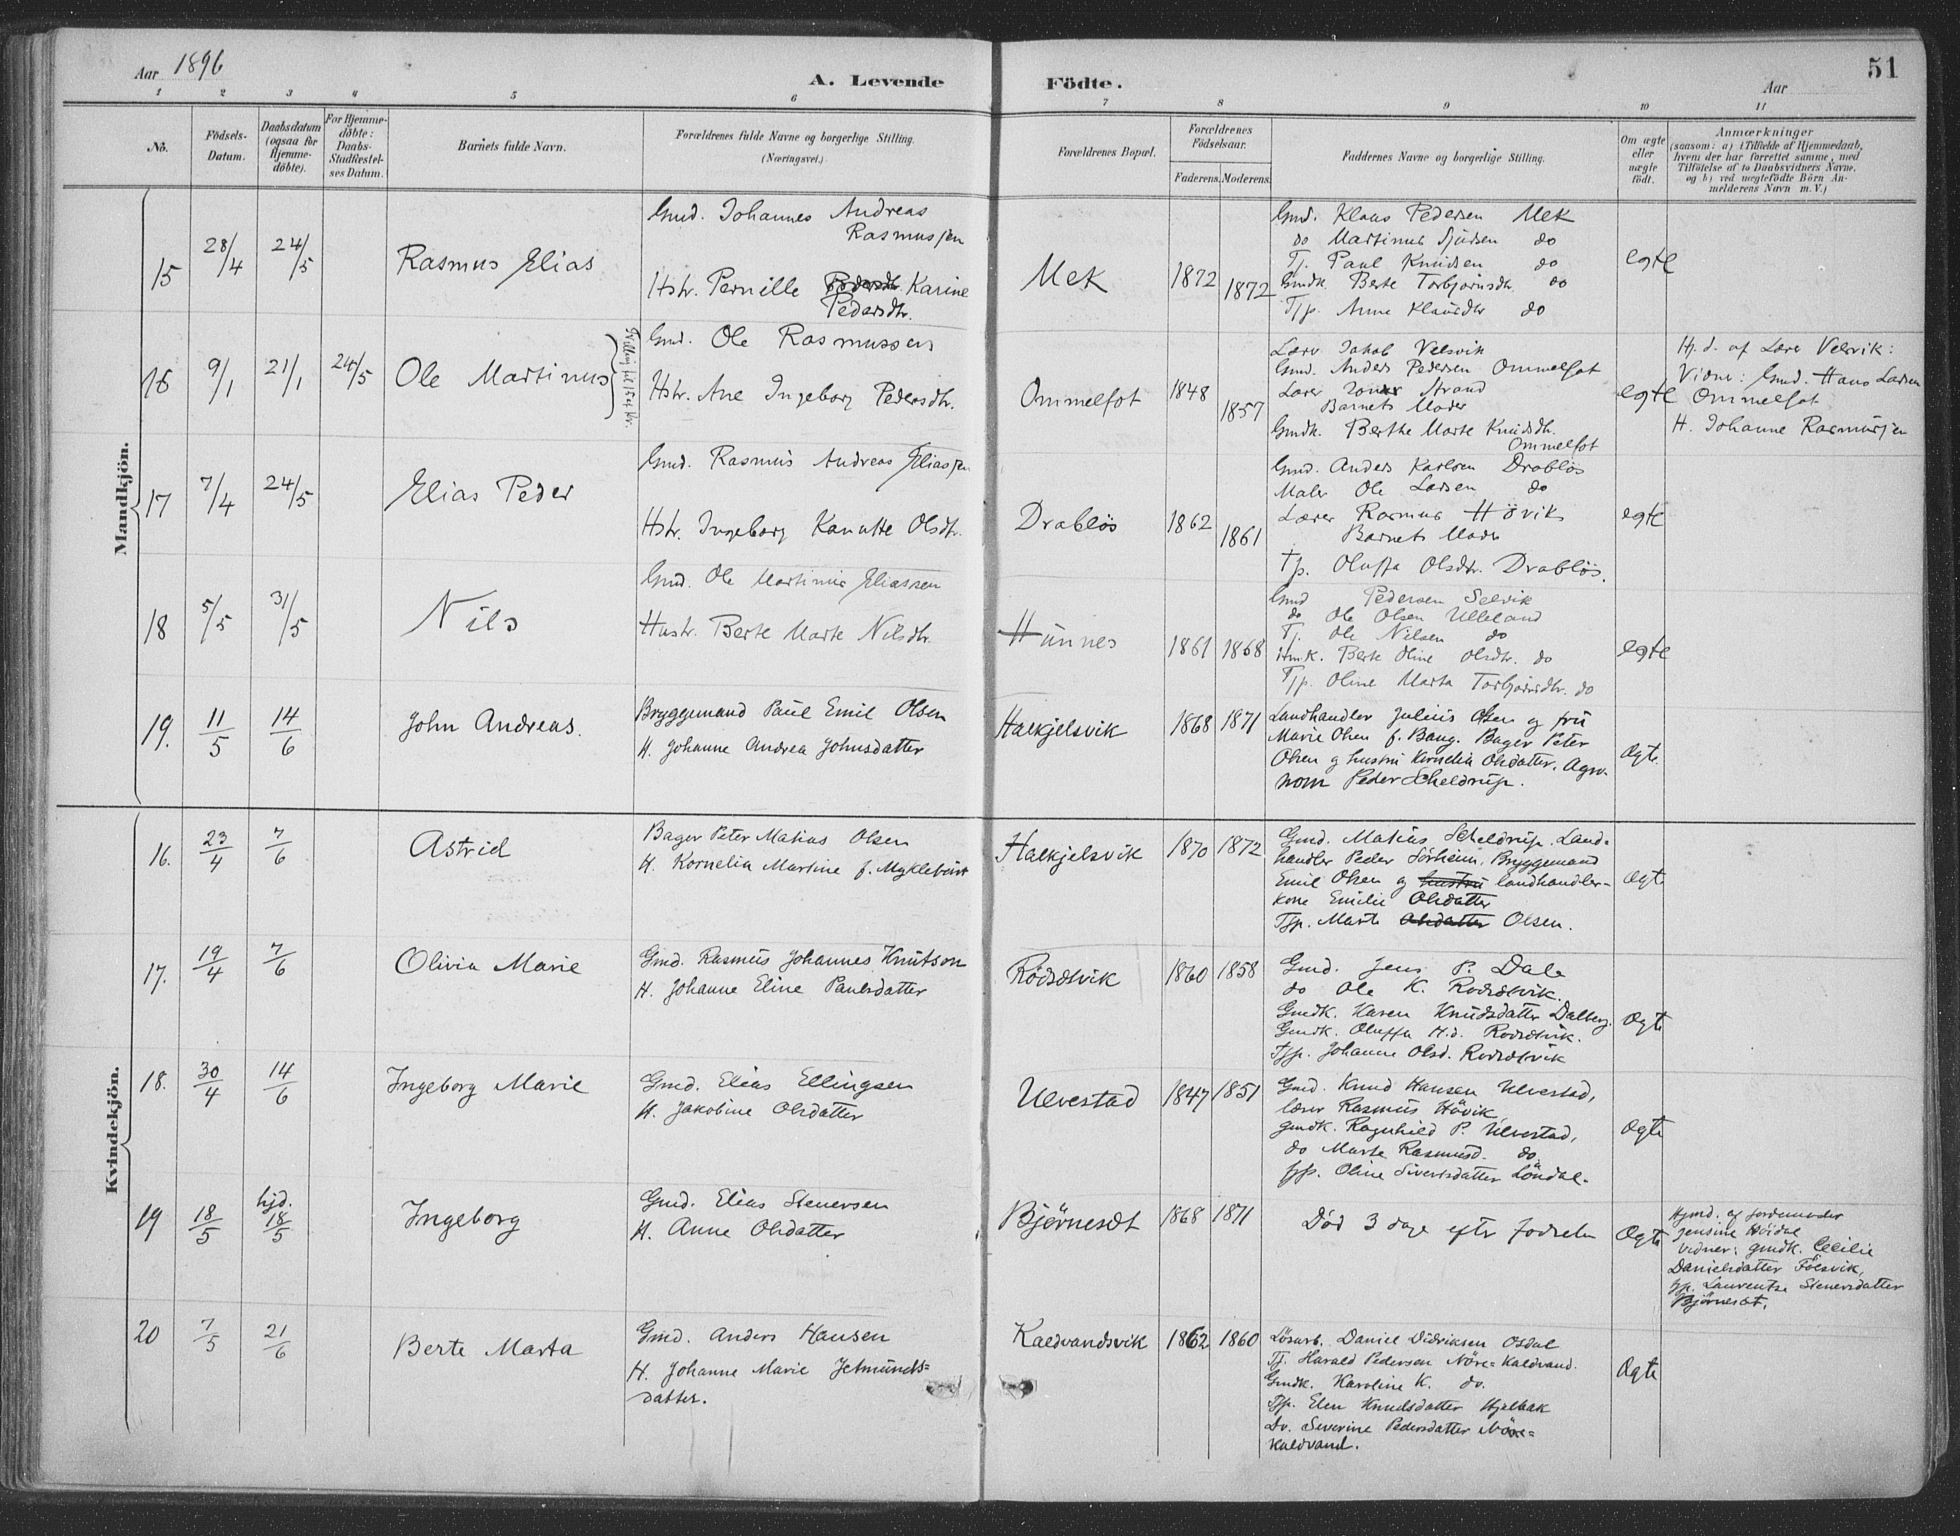 Aar 1896
A. Levende Födte.
Aar
51
1 2 3 4 5 6 7 8 9 10 11
No.
Födsels-
Datum.
Daabsdatum
(ogsaa for
Hjemme-
döbte).
For Hjemme-
döbte:
Daabs-
Stadfæstel-
ses Datum.
Barnets fulde Navn.
Forældrenes fulde Navne og borgerlige Stilling.
(Næringsvei.)
Forældrenes Bopæl.
Forældrenes
Födselsaar.
Faderens. Moderens.
Faddernes Navne og borgerlige Stilling.
Om ægte
eller
uægte
födt.
Anmærkninger
(saasom: a) i Tilfælde af Hjemmedaab,
hvem der har forrettet samme, med
Tilföielse af to Daabsvidners Navne,
og b) ved uægtefödte Börn An-
melderens Navn m. V.)
Mandkjön.
15
28/4
24/5
Rasmus Elias
Gmd. Johannes Andreas
Rasmussen
Hstr. Pernille Pedersdtr. Karine
Pedersdtr.
Mek
1872
1872
Gmd. Klaus Pedersen Mek
do Martinus Sjursen do
Tj. Paul Knudsen do
Gmdk. Berte Torbjörnsdtr. do
Tjp. Anne Klausdtr do
egte
16
9/1
21/1
24/5
Ole Martinus
Gmd. Ole Rasmussen
Hstr. Ane Ingeborg Pedersdtr.
Ommelfot
1848
1857
Lærer Jakob Velsvik
Gmd. Anders Pedersen Ommelfot
Lærer Strand
Barnets Moder
Gmdk. Berthe Marte Knudsdtr.
Ommelfot
egte
Hj. d. af Lærer Velsvik:
Vidner: Gmd. Hans Larsen
Ommelfot
H. Johanne Rasmussen
17
7/4
24/5
Elias Peder
Gmd. Rasmus Andreas Eliassen
Hstr. Ingeborg Kanutte Olsdtr.
Drabløs
1862
1861
Gmd. Anders Karlsen Drabløs
Maler Ole Larsen do
Lærer Rasmus Hövik
Barnets Moder
Tjp. Oluffa Olsdtr. Drabløs.
egte
18
5/5
31/5
Nils
Gmd. Ole Martinus Eliassen
Hustr. Berte Marte Nilsdtr.
Hunnes
1861
1868
Gmd Pedersen Selvik
do Ole Olsen Ulleland
Tj. Ole Nilsen do
Gmk. Berte Oline Olsdtr. do
Tjp. Oline Marta Torbjörnsdtr. do
egte
19.
11/5
14/6
John Andreas.
Bryggemand Paul Emil Olsen
H. Johanne Andrea Johnsdatter
Halkjelsvik
1868
1871
Landhandler Julius Olsen og fru
Marie Olsen f. Bang. Bager Peter
Olsen og hustru Kornelia Olsdatter. Agro-
nom Peder Scheldrup.
Ægte.
Kvindekjön.
16.
23/4
7/6
Astrid
Bager Peter Matias Olsen
H. Kornelia Martine f. Myklebust
Halkjelsvik
1870
1872
Gmd. Matias Scheldrup. Land-
handler Peder Sörheim. Bryggemand
Emil Olsen og hustru landhandler-
kone Emilie Olsdatter
Tjp. Marte Olsdatter Olsen.
Ægte
17.
19/4
7/6
Olivia Marie
Gmd. Rasmus Johannes Knutson
H. Johanne Eline Paulsdatter
Rødsætvik
1860
1858
Gmd. Jens P. Dale
do Ole K. Rødsætvik.
Gmdk. Karen Knudsdatter Dalberg.
Gmdk. Oluffa H.d. Rødsætvik.
Tjp. Johanne Olsd. Rødsætvik
Ægte
18.
30/4
14/6
Ingeborg Marie
Gmd. Elias Ellingsen
H. Jakobine Olsdatter
Ulvestad
1847
1851
Gmd. Knud Hansen Ulvestad,
lærer Rasmus Hövik,
gmdk. Ragnhild P. Ulvestad,
do Marte Rasmusd. do
tjp. Oline Sivertsdatter Löndal.
Ægte
19
18/5
hjd.
18/5
Ingeborg
Gmd. Elias Stenersen
H. Anne Olsdatter
Bjørnesæt
1868
1871
Död 3 dage efter fødselen
Ægte
Hjmd. af jordemoder
Jensine Höidal
Vidner: gmdk. Cecilie
Danielsdatter Fölsvik,
tjp. Laurentse Stenersdatter
Bjørnesæt.
20
7/5
21/6
Berte Marta
Gmd. Anders Hansen
H. Johanne Marie Jetmunds-
datter.
Kaldvandsvik
1862
1860
Løsarb. Daniel Didriksen Osdal
Tj. Harald Pedersen Nöre-Kaldvand.
Gmdk. Karoline K. do.
Tjp. Elen Knudsdatter Hjelbak
Do. Severine Pedersdatter Nöre-
Kaldvand.
Ægte